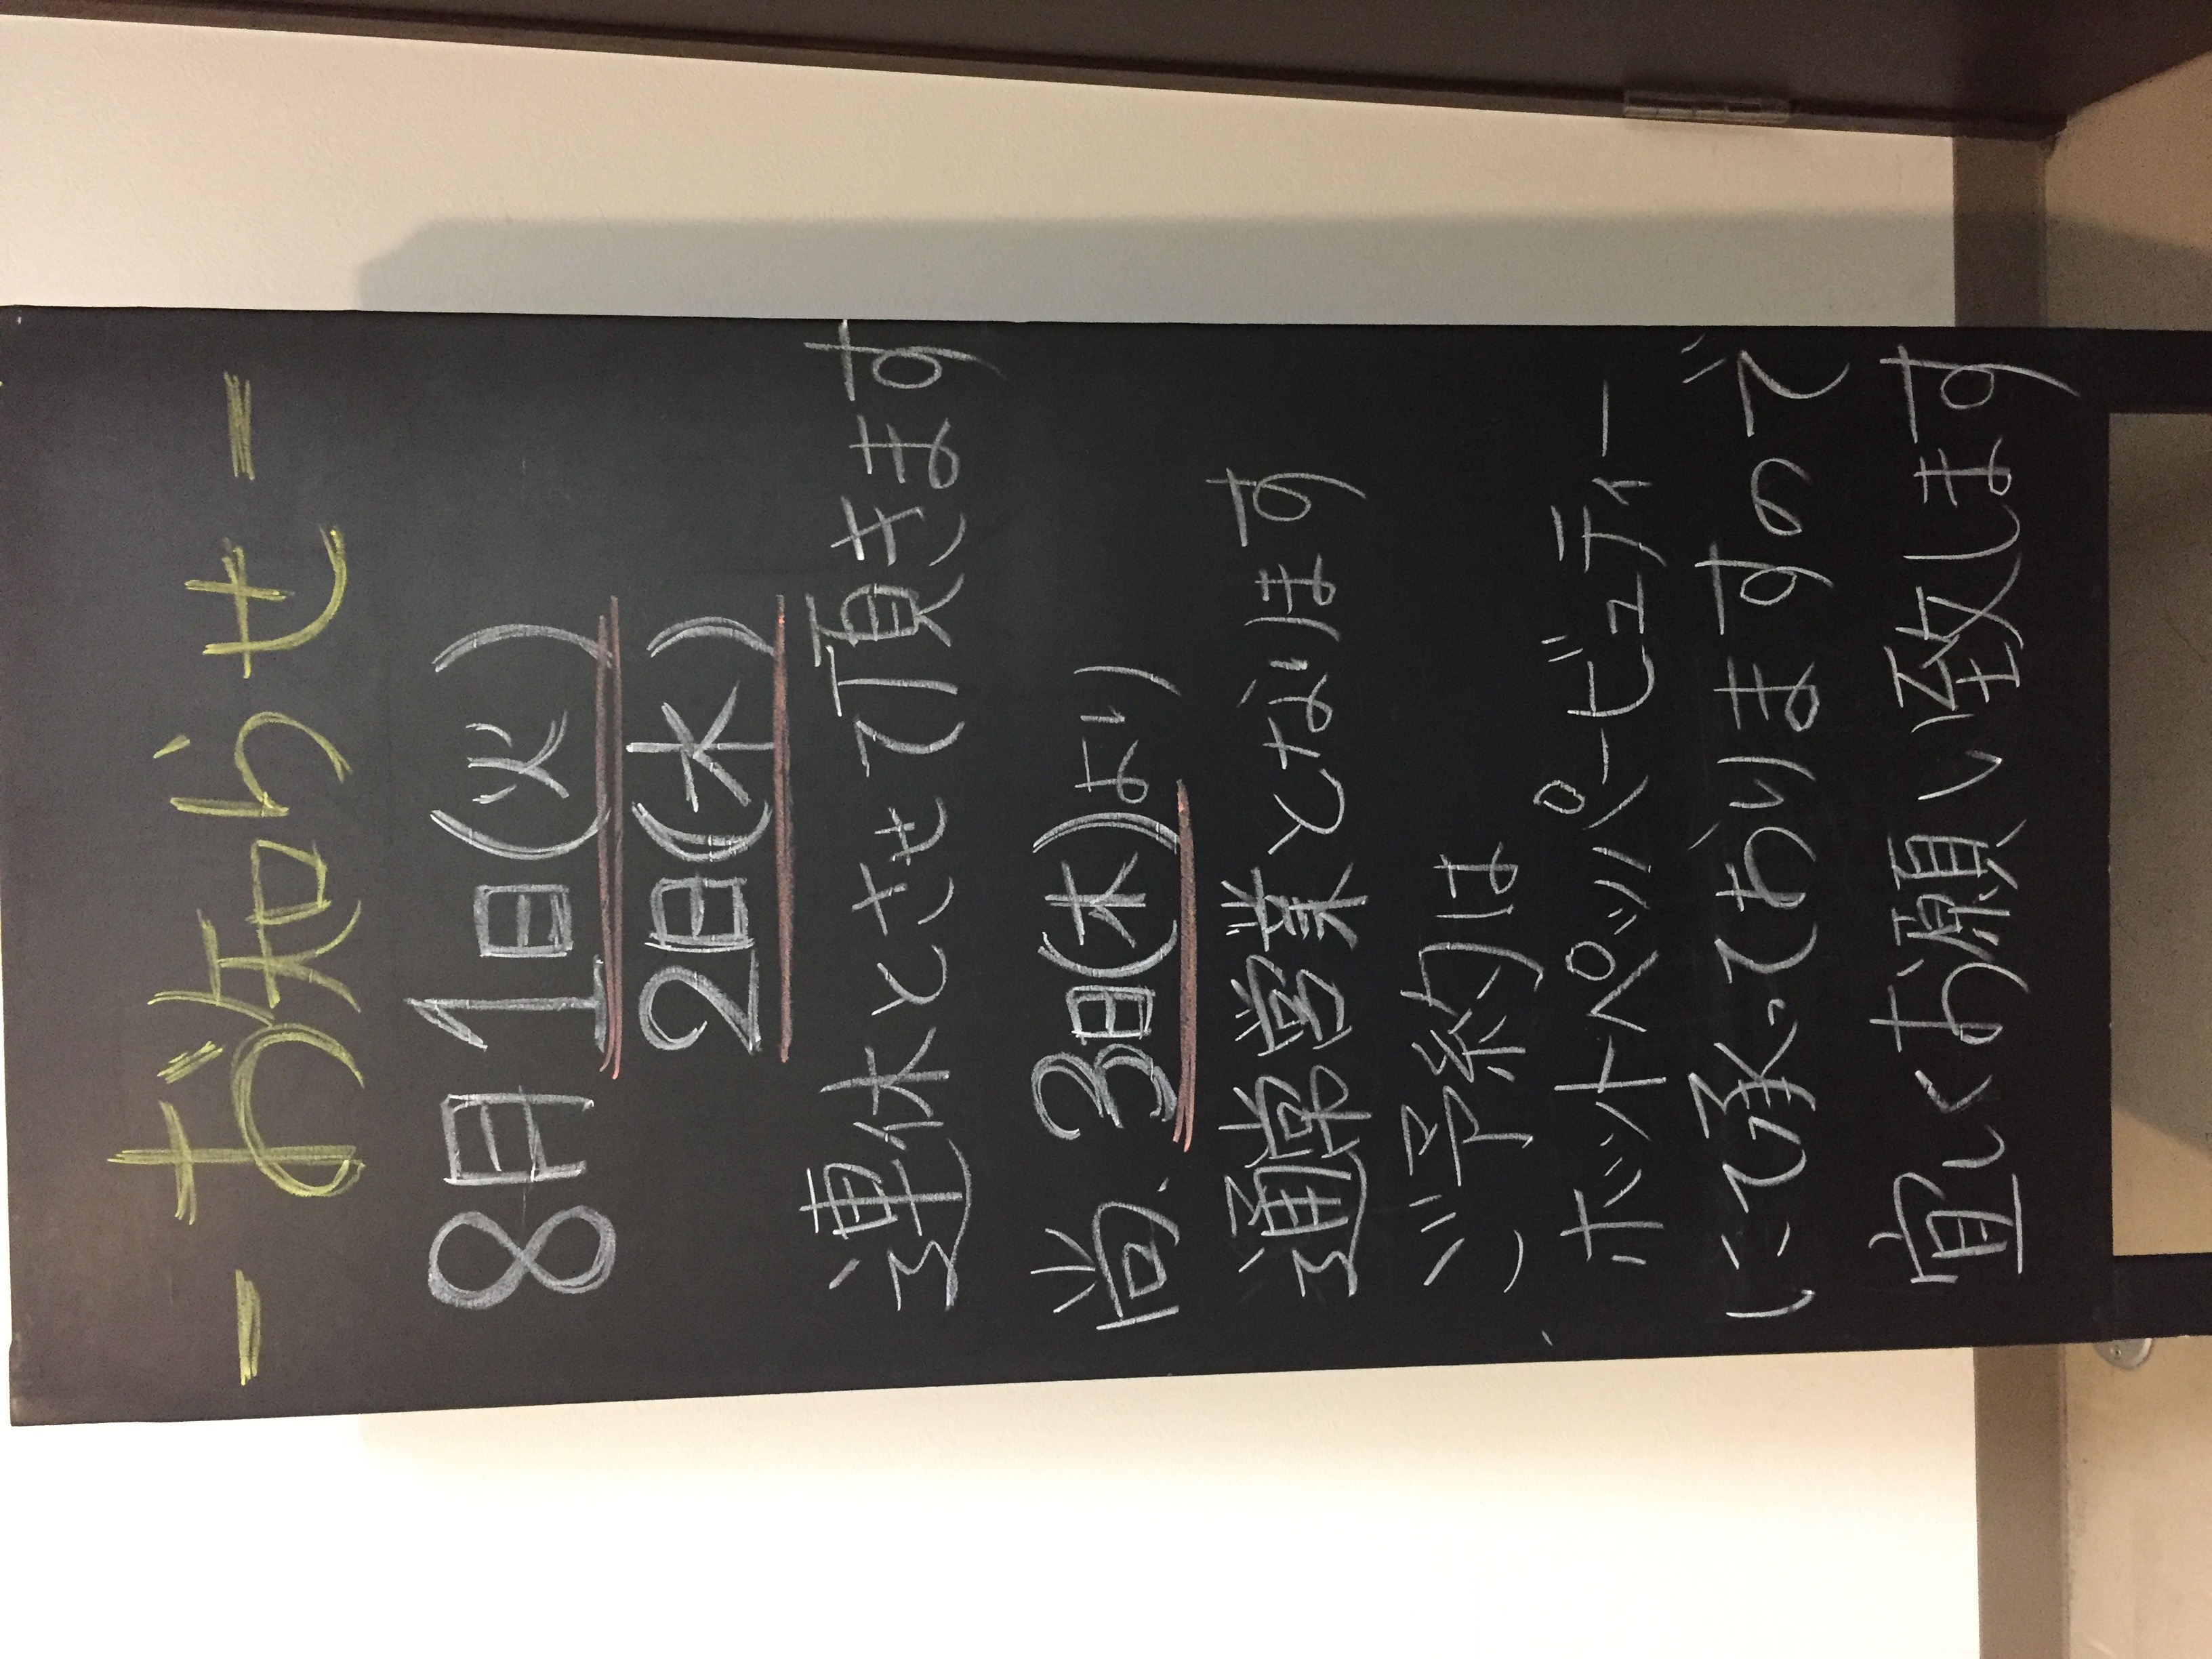 - お知らせ -
8月1日(火)
2日(水)
連休とさせて頂きます
尚、3日(木)より
通常営業となります
ご予約は
ホットペッパービューティー
にて承っておりますので
宜しくお願い致します